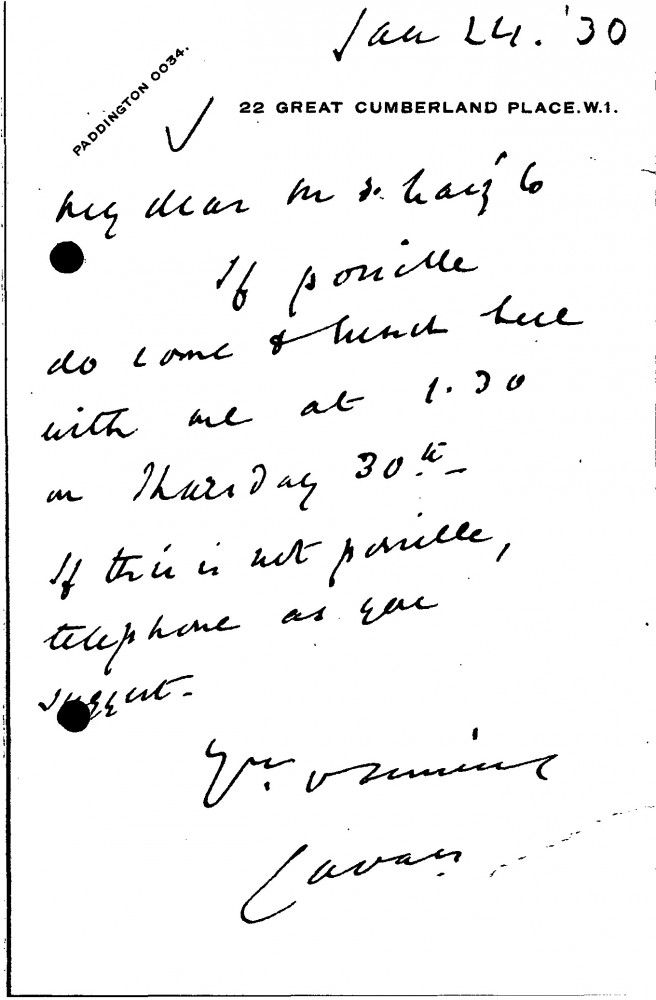 Jan 24. '30
PADDINGTON 0034.
22 GREAT CUMBERLAND PLACE. W.1.
My dear
If possible
do come & lunch here
with me at 1.30
on Thursday 30th
If this is not possible,
telephone as you
suggest.
Yrs. v sincerely
Cavan